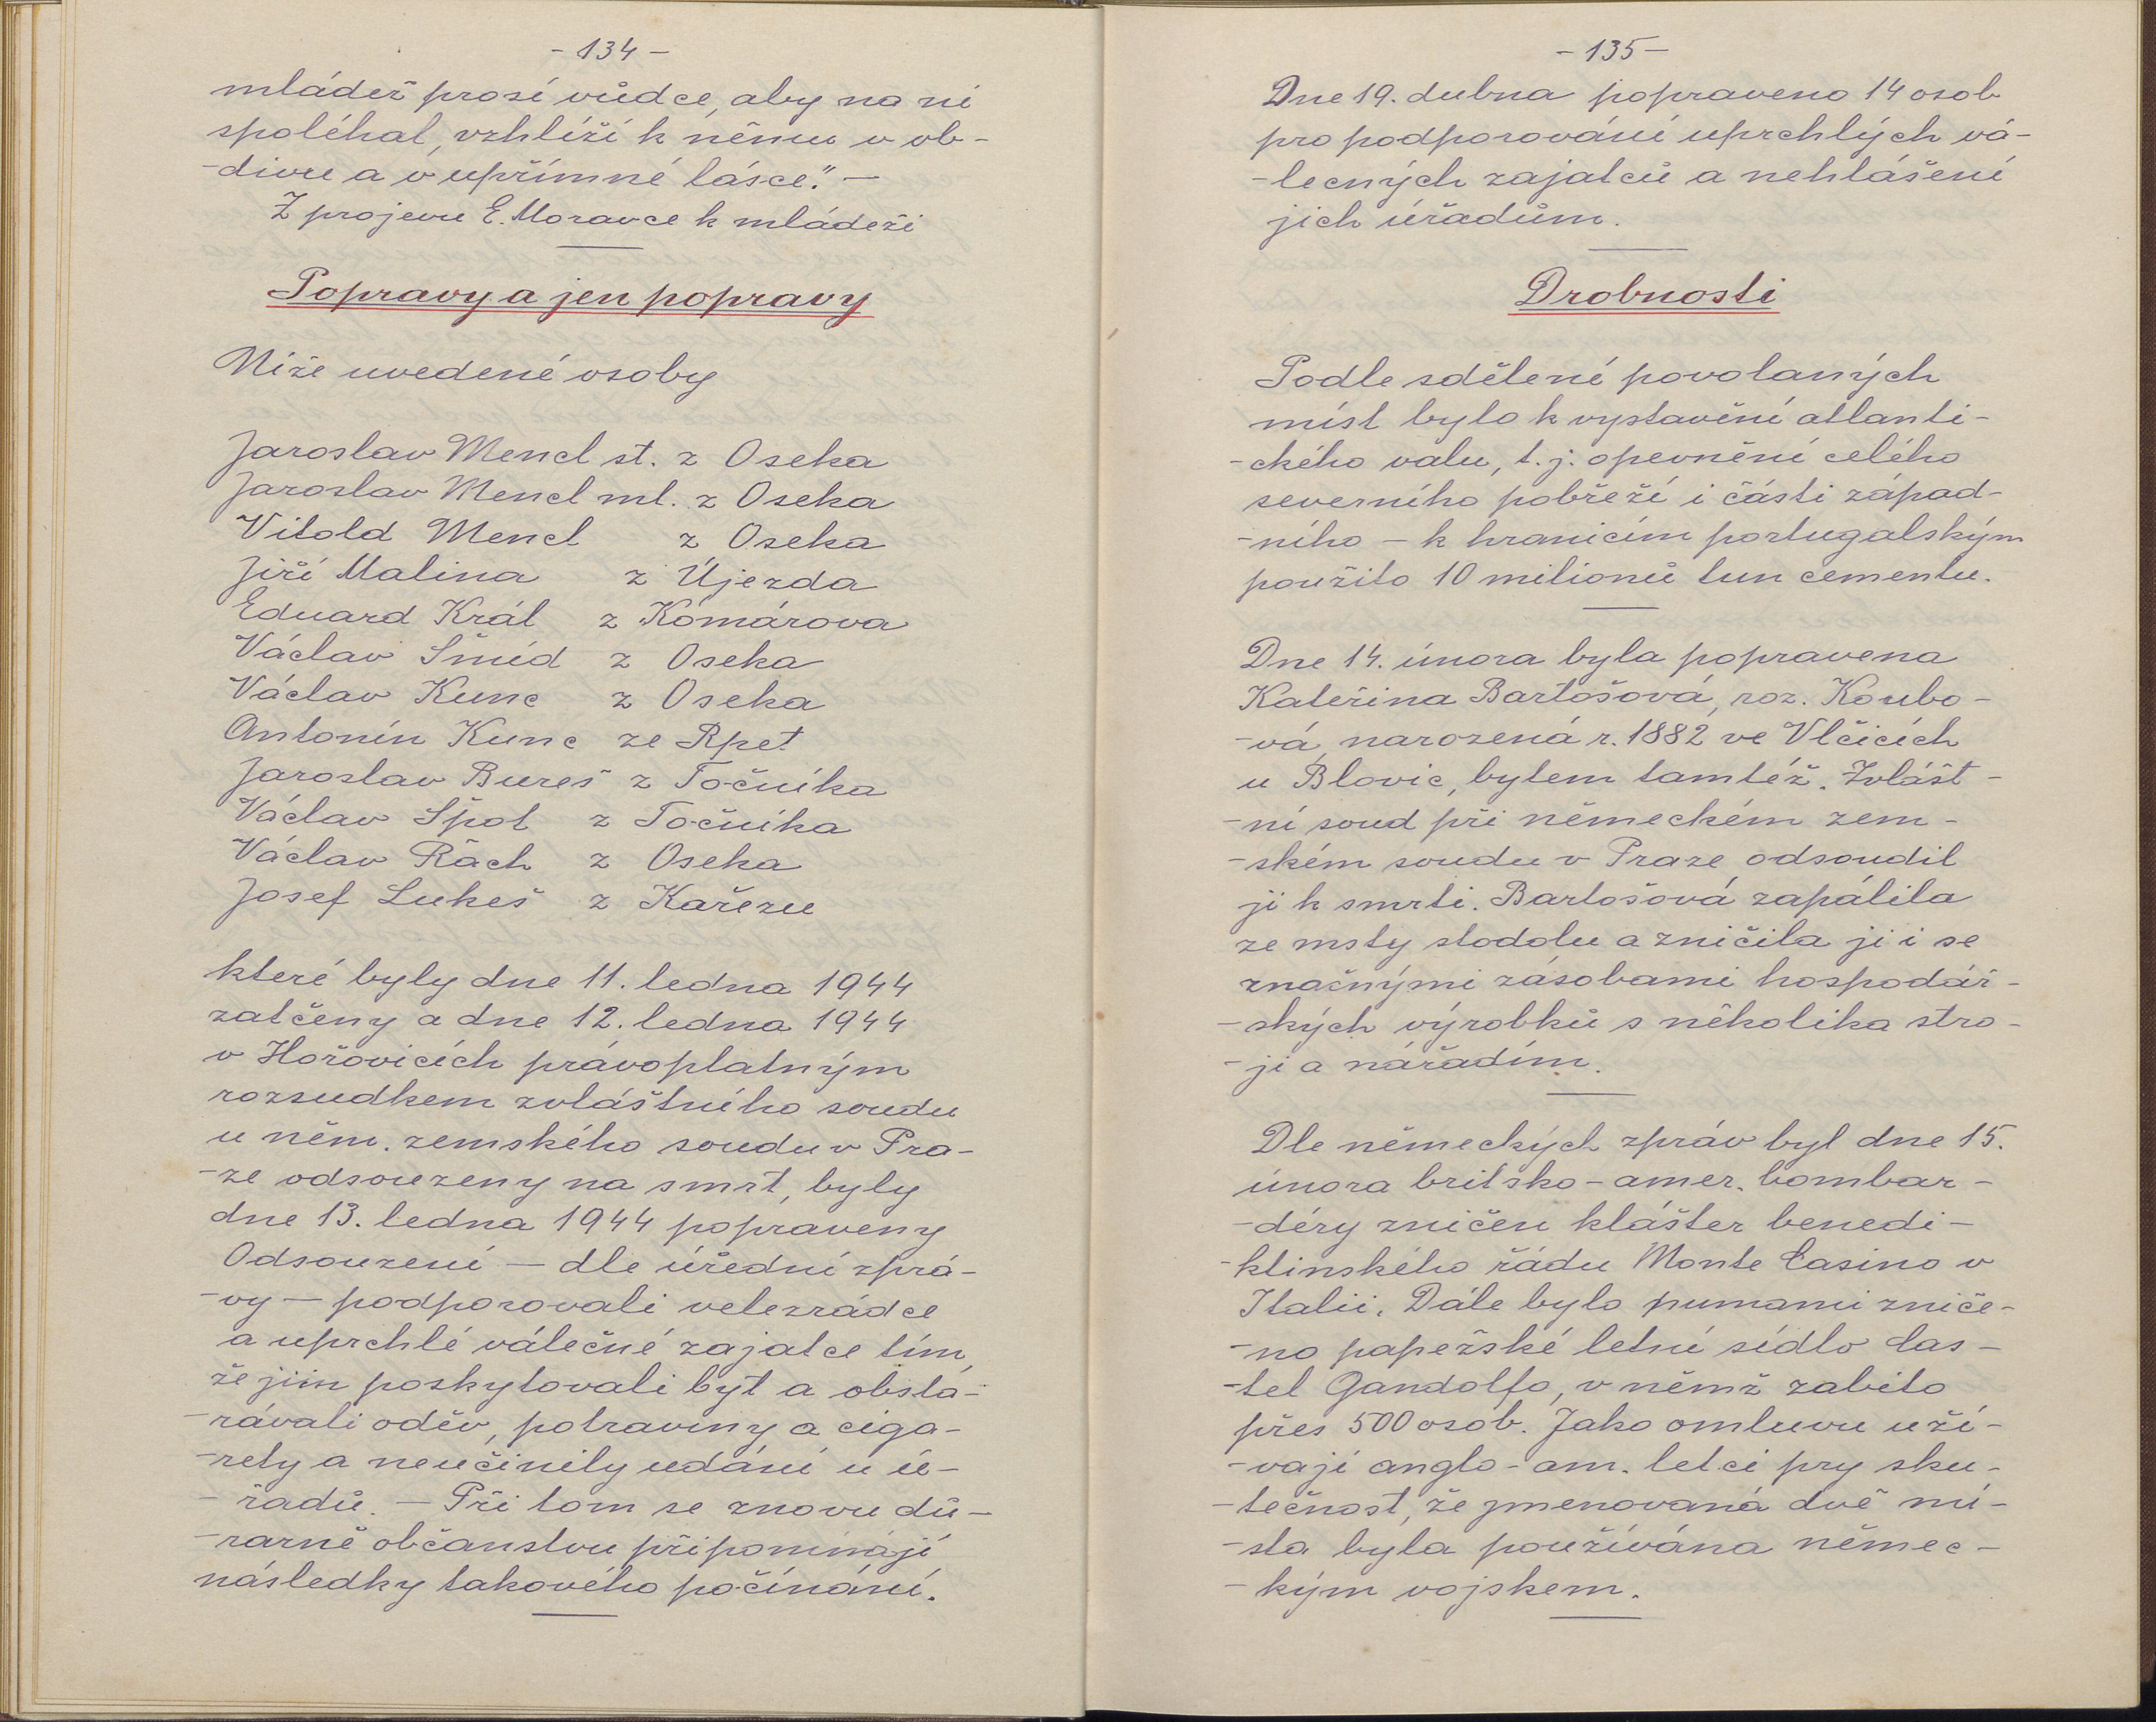 - 134 -
mládež prosí vůdce, aby na ni
spoléhal, vzhlíží k němu v ob-
-divu a v upřímné lásce." -
Z projevu E. Moravce k mládeži
Popravy a jen popravy
Níže uvedené osoby
Jaroslav Mencl st. z Oseka
Jaroslav Mencl ml. z Oseka
Vitold Mencl z Oseka
Jiří Malina z Újezda
Eduard Král z Komárova
Václav Šmíd z Oseka
Václav Kunc z Oseka
Antonín Kunc ze Rpet
Jaroslav Bureš z Točníka
Václav Špot z Točníka
Václav Rách z Oseka
Josef Lukeš z Kařezu
které byly dne 11. ledna 1944
zatčeny a dne 12. ledna 1944
v Hořovicích právoplatným
rozsudkem zvláštního soudu
u něm. zemského soudu v Pra-
-ze odsouzeny na smrt, byly
dne 13. ledna 1944 popraveny
Odsouzení - dle úřední zprá-
-vy - podporovali velezrádce
a uprchlé válečné zajatce tím,
že jim poskytovali byt a obsta-
-rávali oděv, potraviny a ciga-
-rety a neučinily udání u ú-
-řadů. - Při tom se znovu dů-
-razně občanstvu připomínají
následky takového počínání.
- 135 -
Dne 19. dubna popraveno 14 osob
pro podporování uprchlých vá-
-lecných zajatců a nehlášení
jich úřadům.
Drobnosti
Podle sdělení povolaných
míst bylo k vystavění atlanti-
-ckého valu, t. j. opevnění celého
severního pobřeží i části západ-
-ního - k hranicím portugalským
použito 10 milionů tun cementu.
Dne 14. února byla popravena
Kateřina Bartošová, roz. Koubo-
-vá, narozená r. 1882 ve Vlčicích
u Blovic, bytem tamtéž. Zvlášt-
-ní soud při německém zem-
-ském soudu v Praze odsoudil
ji k smrti. Bartošová zapálila
ze msty stodolu a zničila ji i se
značnými zásobami hospodář-
-ských výrobků s několika stro-
-ji a nářadím.
Dle německých zpráv byl dne 15.
února britsko-amer. bombar-
-déry zničen klášter benedi-
-ktinského řádu Monte Casino v
Italii. Dále bylo pumami zniče-
-no papežské letní sídlo Cas-
-tel Gandolfo, v němž zabito
přes 500 osob. Jako omluvu uží-
-vají anglo-am. letci prý sku-
-tečnost, že jmenovaná dvě mí-
-sta byla používána němec-
-kým vojskem.